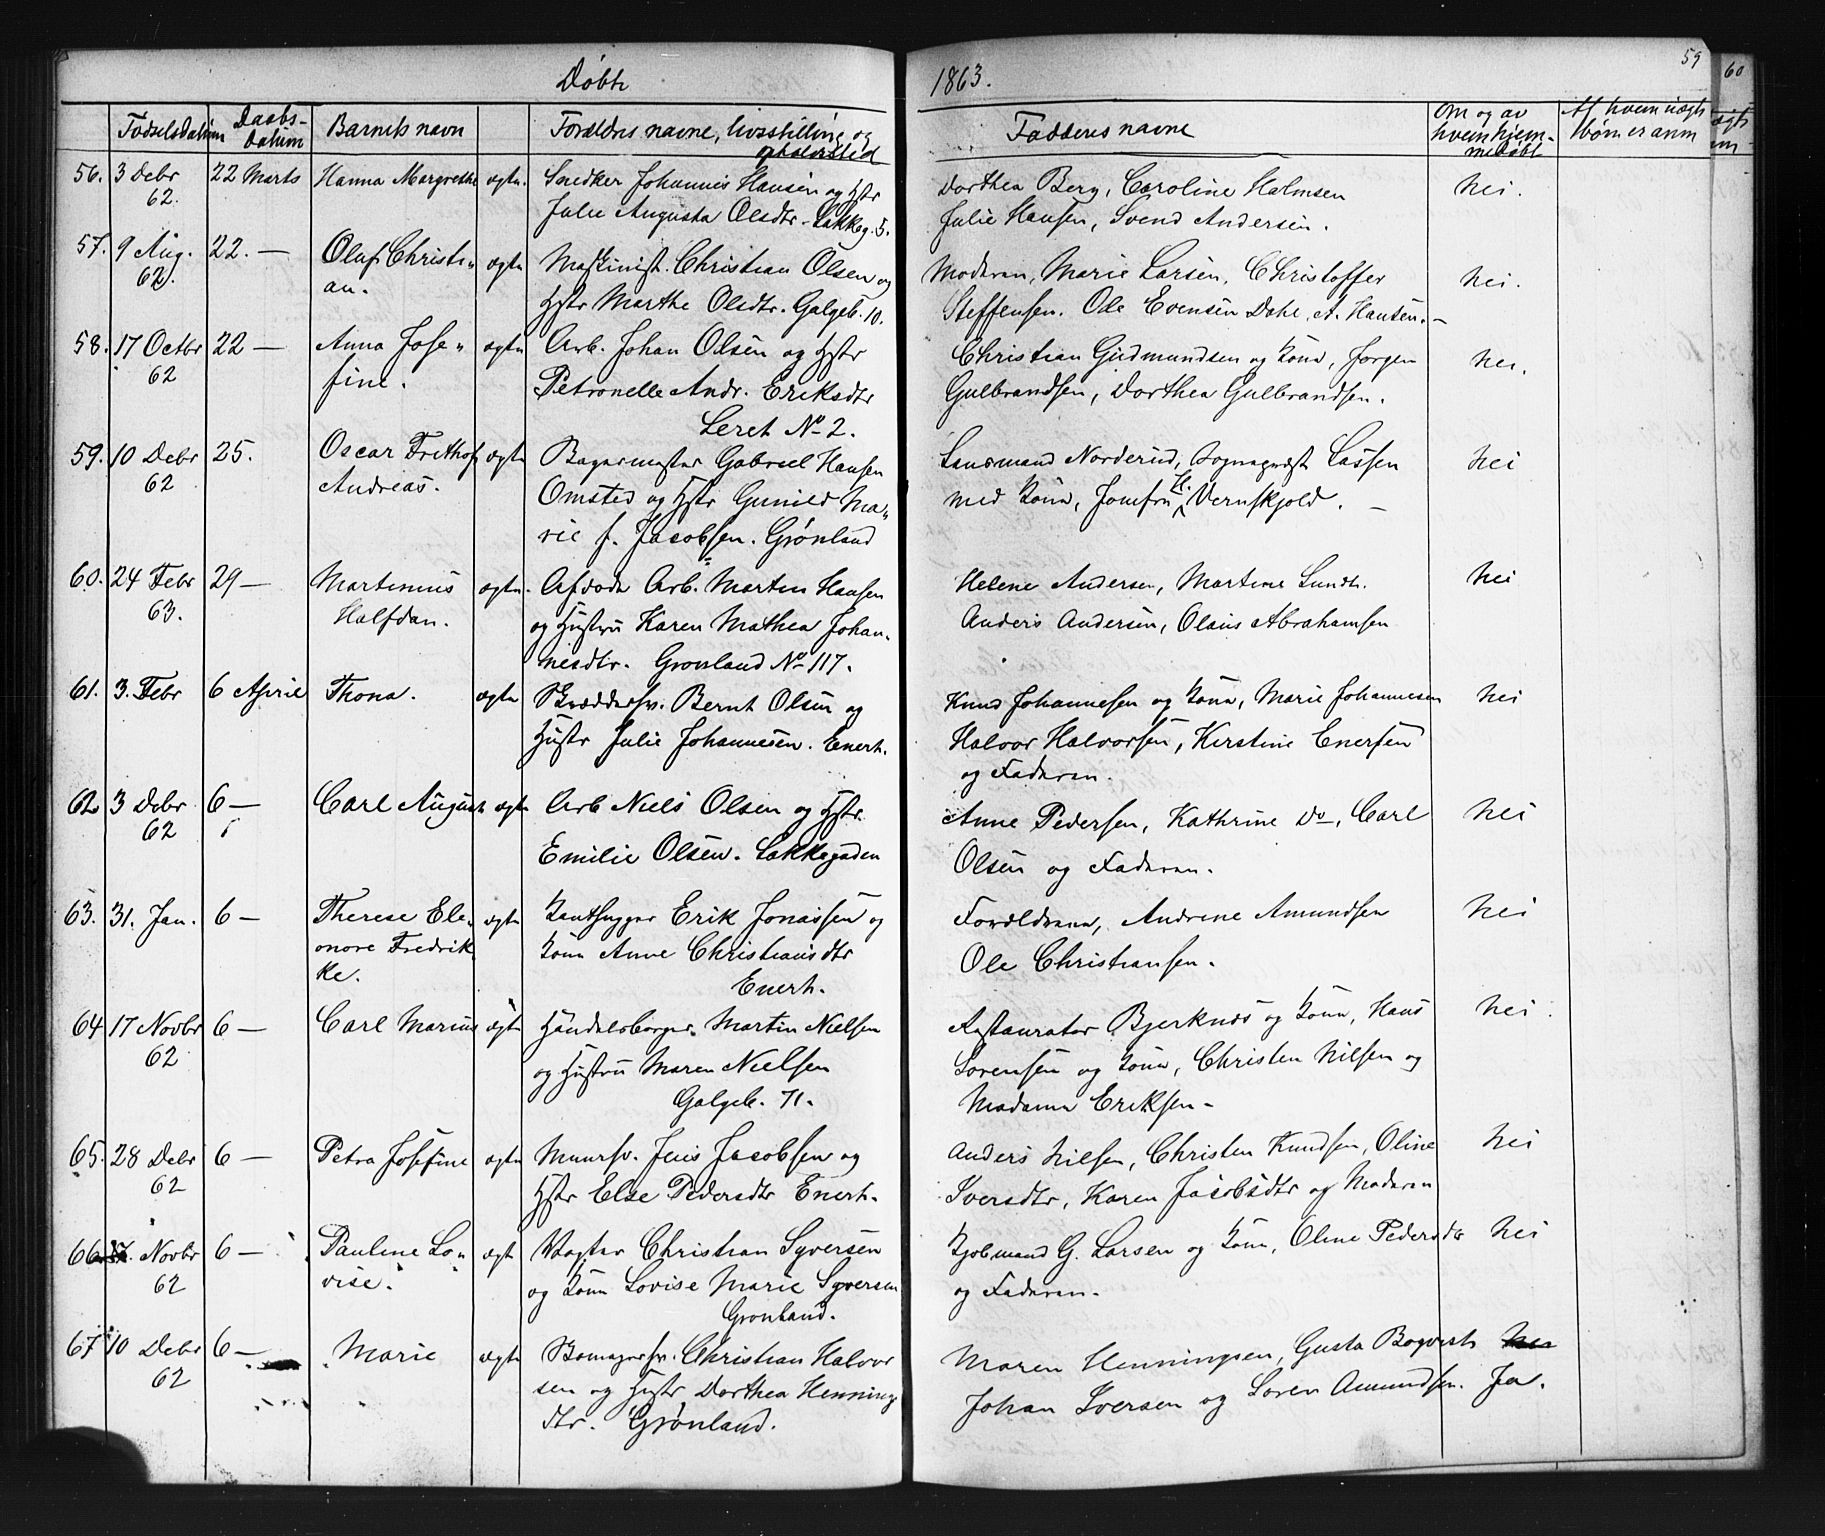 59
60
Døbte
1863.
Fødselsdatum
Daabs-
datum
Barnets navn
Forældres navne, livsstilling og
opholdssted
Faddernes navne
Om og av
hvem hjem-
medøbt
Af hvem uægte
børn er anm
56. 3 Debr 22 Marts Hanna Margrethe ægte. Snedker Johannes Hansen og Hstr Dorthea Berg, Caroline Halmsen nei.
62. Julie Augusta Olsdtr. Lakkeg. 5. Julie Hansen, Svend Andersen.
57. 9 Aug. 22. — Oluf Christi- ægte Maskinist. Christian Olsen og Moderen, Marie Larsen, Christoffer nei.
62. an. Hstr Marthe Olsdtr. Galgeb. 10. Steffensen. Ole Evensen Dahl, A. Hansen. —
58. 17 Octbr 22 — Anna Jose- ægte Arb. Johan Olsen og Hstr Christian Gudmundsen og Kone, Jørgen nei.
62 fine. Petronelle Andr. Eriksdtr Gulbrandsen, Dorthea Gulbrandsen.
Leret No 2.
59. 10 Debr 25. Oscar Frithof ægte Bagermester Gabriel Hansen Lensmand Norderud, Sognepræst Lassen nei
62 Andreas. Omsted og Hstr Gunild Ma- med Kone, Jomfru H. Vernskjold. —
rie f. Jacobsen. Grønland
60. 24 Febr 29 — Martinius ægte. Afdøde Arb. Morten Hansen Helene Andersen, Martine Lundh. nei
63. Halfdan. og Hustru Karen Mathea Johan- Anders Andersen, Olaus Abrahamsen
nesdtr. Grønland No 117.
61. 3. Febr 6 April Thona. ægte Skræddersv. Bernt Olsen og Knud Johannesen og Kone, Marie Johannesen nei
Hustr Julie Johannesen. Enerh. Halvor Halvorsen, Kirstine Enersen
og Faderen.
62 3 Debr 6 — Carl August ægte Arb Niels Olsen og Hstr. Anne Pedersen, Kathrine Do, Carl nei
62 Emilie Olsen. Lakkegaden Olsen og Faderen.
63. 31. Jan. 6 — Therese Ele- ægte Kanthugger Erik Jonassen og Forældrene, Andrine Amundsen nei
onore Fredrik- Kone Anne Christiansdtr Ole Christiansen.
ke. Enerh.
64 17 Novbr 6 — Carl Marius ægte Handelsborger. Martin Nielsen Restauratør Bjerknæs og Kone, Hans nei.
62 og Hustru Maren Nielsen Sørensen og Kone, Christen Nilsen og
Galgeb. 71. Madame Eriksen —
65. 28 Debr 6 — Petra Josefine ægte Muursv. Jens Jacobsen og Anders Nilsen, Christen Knudsen, Oline nei
62 Hstr Else Pedersdtr Enerh. Iversdtr, Karen Jacobsdtr og Moderen
66 Novbr 6 — Pauline Lo- ægte Vægter Christian Syversen Kjøbmand G. Larsen og Kone, Oline Pedersdtr nei
62 vise. og Kone Lovise Marie Syversen og Faderen.
Grønland.
67 10 Debr 6 — Marie ægte Bomagersv. Christian Halvor Maren Henningsen, Gusta Bogvest nei
62 sen og Hustr Dorthea Hennings Johan Iversen og Søren Amundsen. Ja.
dtr. Grønland.